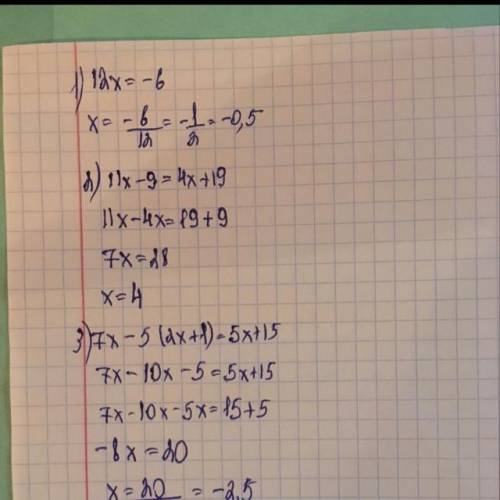 1) 12x = -6
x = -6/12 = -1/2 = -0,5
2) 11x - 9 = 4x + 19
11x - 4x = 19 + 9
7x = 28
x = 4
3) 7x - 5(2x + 1) = 5x + 15
7x - 10x - 5 = 5x + 15
7x - 10x - 5x = 15 + 5
-8x = 20
x = 20/ = -2,5